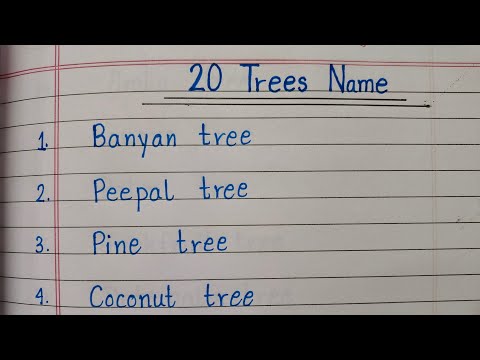 20 Trees Name
1. Banyan tree
2. Peepal tree
3. Pine tree
4. Coconut tree